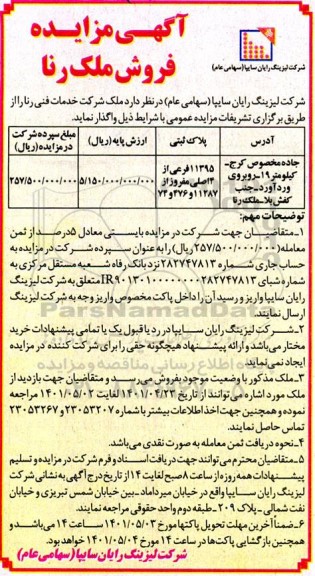 آگهی مزایده
فروش ملک رنا
شرکت لیزینگ رایان سایپا (سهامی عام)
شرکت لیزینگ رایان سایپا (سهامی عام) در نظر دارد ملک شرکت خدمات فنی رنا را از
طریق برگزاری تشریفات مزایده عمومی با شرایط ذیل واگذار نماید.
آدرس
پلاک ثبتی
ارزش پایه (ریال)
مبلغ سپرده شرکت
در مزایده (ریال)
جاده مخصوص کرج-
کیلومتر ۱۹-روبروی
وردآورد-جنب
کفش بلا-ملک رنا
۱۱۳۹۵ فرعی از
۴ اصلی مفروز از
۱۱۲۸۷ و ۳۷۶ و ۷۴
۵/۱۵۰/۰۰۰/۰۰۰/۰۰۰
۲۵۷/۵۰۰/۰۰۰/۰۰۰
توضیحات مهم:
۱-متقاضیان جهت شرکت در مزایده بایستی معادل ۵درصد از ثمن
معامله (۲۵۷/۵۰۰/۰۰۰/۰۰۰ ریال) را به عنوان سپرده شرکت در مزایده به
حساب جاری شماره ۲۸۲۷۴۷۸۱۳ نزد بانک رفاه شعبه مستقل مرکزی به
شماره شبای IR۹۰۱۳۰۱۰۰۰۰۰۰۰۰۲۸۲۷۴۷۸۱۳ متعلق به شرکت لیزینگ
رایان سایپا واریز و رسید آن را داخل پاکت مخصوص واریز وجه به شرکت لیزینگ
ارسال نمایند.
۲-شرکت لیزینگ رایان سایپا در رد یا قبول یک یا تمامی پیشنهادات خرید
مختار می‌باشد و ارائه پیشنهاد هیچگونه حقی را برای شرکت کننده در مزایده
ایجاد نمی‌نماید.
۳-ملک مذکور با وضعیت موجود بفروش می‌رسد و متقاضیان جهت بازدید از
ملک مورد اشاره می توانند از تاریخ ۱۴۰۱/۰۴/۲۳ لغایت ۱۴۰۱/۰۵/۰۲ مراجعه
نموده و همچنین جهت اخذ اطلاعات بیشتر با شماره ۲۳۰۵۳۲۰۷ و ۲۳۰۵۳۲۶۷
تماس حاصل نمایند.
۴-نحوه دریافت ثمن معامله به صورت نقدی می‌باشد.
۵-متقاضیان محترم می‌توانند جهت دریافت اسناد و فرم شرکت در مزایده و تسلیم
پیشنهادات همه روزه از ساعت ۸ صبح لغایت ۱۴ از تاریخ درج آگهی به نشانی شرکت
لیزینگ رایان سایپا واقع در خیابان میرداماد -بین خیابان شمس تبریزی و خیابان
نفت شمالی - پلاک ۲۰۹-طبقه دوم واحد حقوقی مراجعه نمایند.
۶-ضمناً آخرین مهلت تحویل پاکتها مورخ ۱۴۰۱/۰۵/۰۳ ساعت ۱۴ می‌باشد و
همچنین بازگشایی پاکت‌ها در ساعت ۱۴ مورخ ۱۴۰۱/۰۵/۰۴ خواهد بود.
شرکت لیزینگ رایان سایپا (سهامی عام)